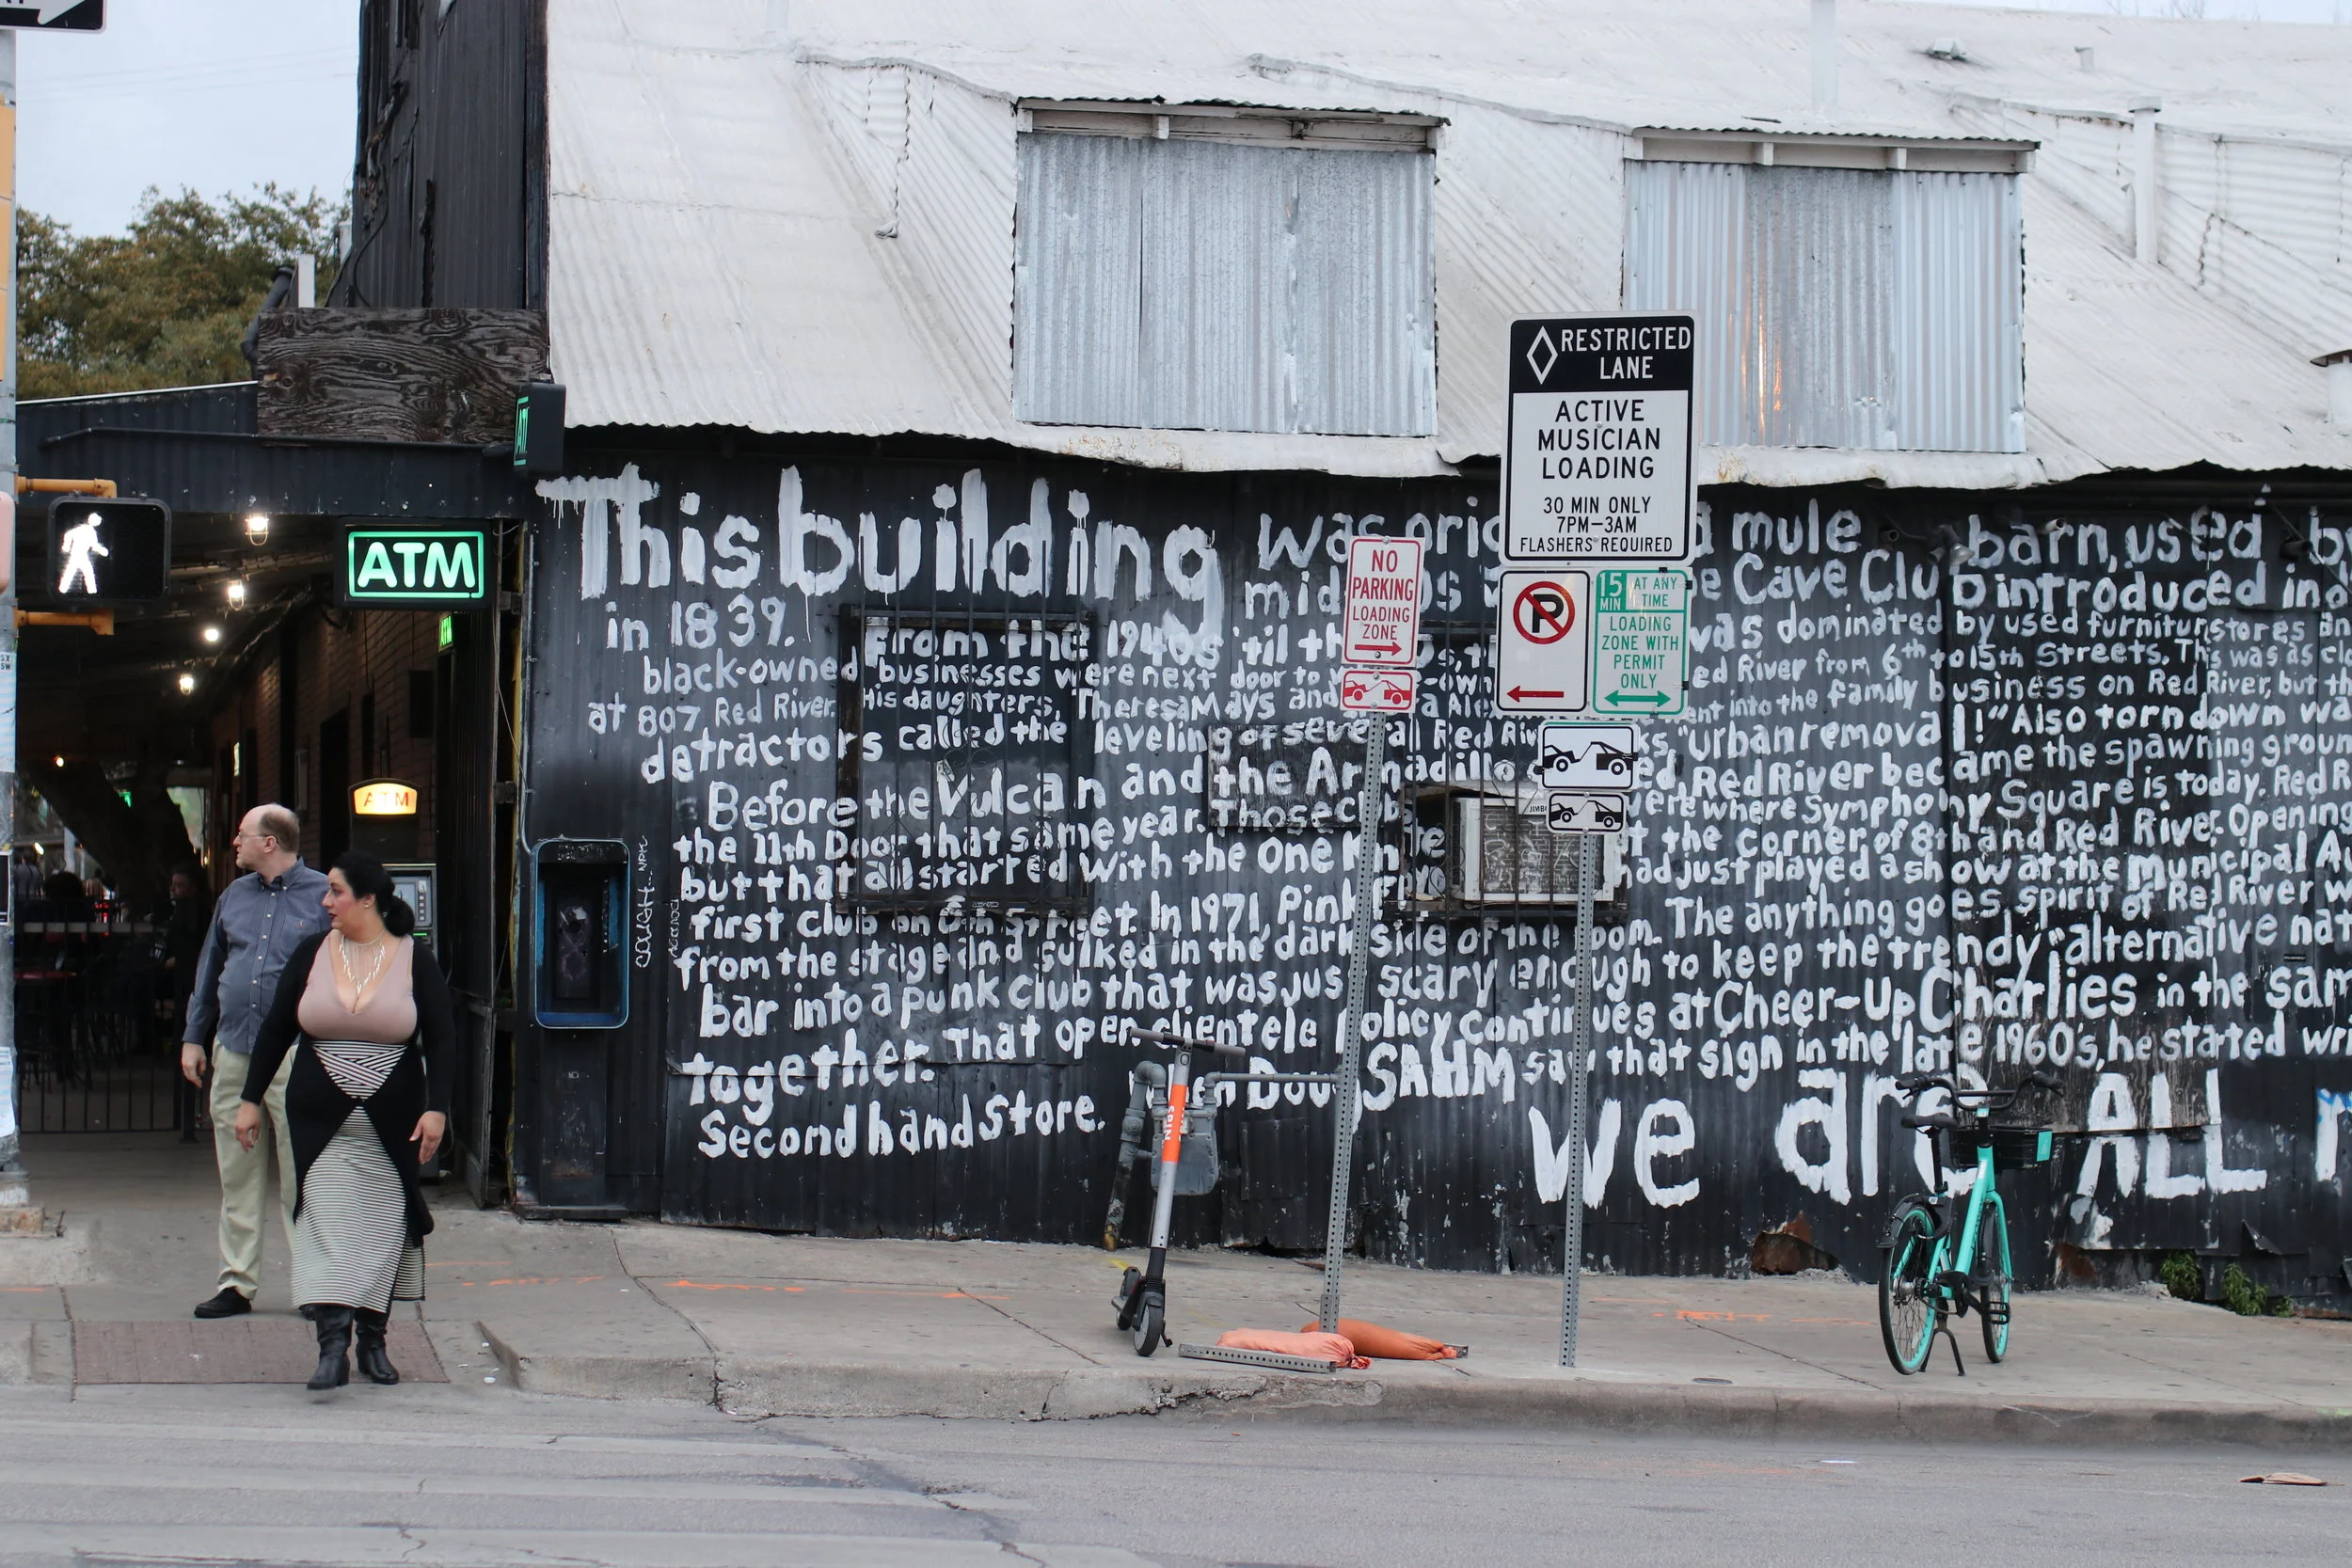 ATM
ATM
This building was orig a mule barn, used b
in 1839. mid s e Cave Club introduced ind
From the 1940s 'til th was dominated by used furniture stores an
black-owned businesses were next door to -own ed River from 6th to 15th Streets. This was as clo
at 807 Red River. His daughters, Theresa Mays and a Ale nt into the family business on Red River, but th
detractors called the leveling of several Red Riv ks, "urban removal!" Also torn down wa
Before the Vulcan and the Armadillo ed, Red River became the spawning groun
the 11th Door that same year. Those cl were where Symphony Square is today. Red R
but that all started with the One Kn t the corner of 8th and Red River. Opening
first club on 6th Street. In 1971, Pink Floyd had just played a show at the Municipal A
from the stage and sulked in the dark side of the room. The anything goes spirit of Red River w
bar into a punk club that was just scary enough to keep the trendy "alternative nat
together. That open clientele policy continues at Cheer-Up Charlies in the sam
When Doug SAHM saw that sign in the late 1960's, he started wri
Second hand Store. we are ALL
RESTRICTED
LANE
ACTIVE
MUSICIAN
LOADING
30 MIN ONLY
7PM-3AM
FLASHERS REQUIRED
NO
PARKING
LOADING
ZONE
P
15 MIN AT ANY TIME
LOADING
ZONE WITH
PERMIT
ONLY
SPIN